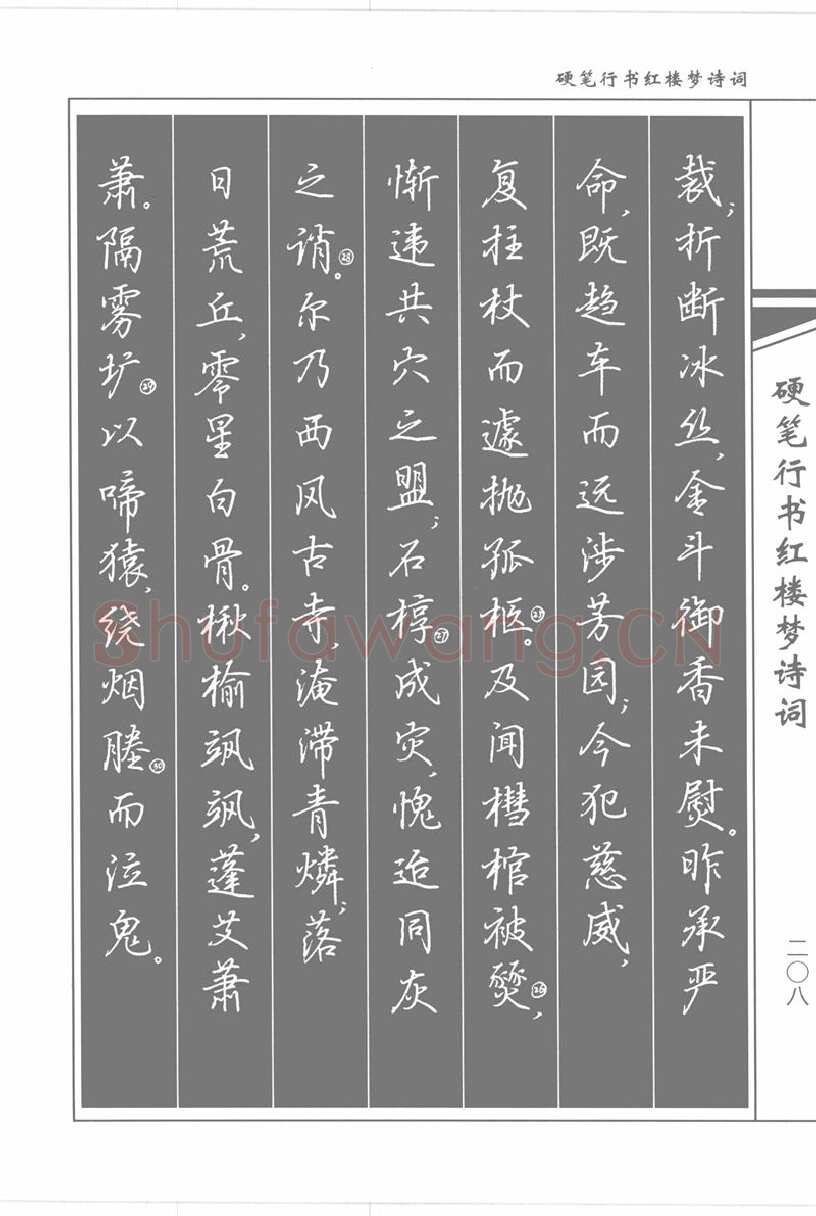 硬笔行书红楼梦诗词
裁；折断冰丝，金斗御香未熨。昨承严
命，既趋车而远涉芳园；今犯慈威，
复拄杖而遽抛孤柩㉕。及闻槥棺被燹㉖，
惭违共穴之盟；石椁㉗成灾，愧迨同灰
之诮㉘。尔乃西风古寺，淹滞青燐；落
日荒丘，零星白骨。楸榆飒飒，蓬艾萧
萧。隔雾圹㉙以啼猿，绕烟塍㉚而泣鬼。
硬笔行书红楼梦诗词
二〇八
Shufawang.CN